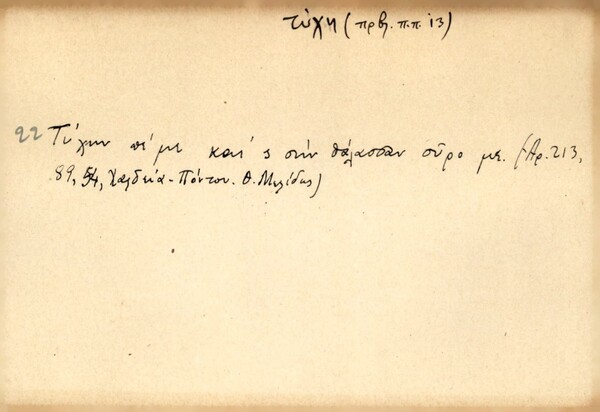 τύχη (πρβλ. π.π. 13)
22 Τύχην πέ με και 'ς σην θάλασσαν σῦρο με. (Αρ. 213,
89, 54, Χαλδεία - Πόντου. Θ. Μιλίδης)